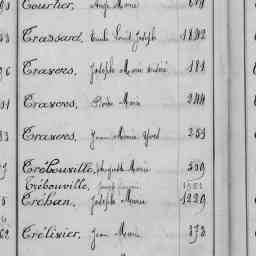 Courtier, Ange Marie
Trassard, Emile Louis Joseph 1892
Travers, Joseph Marie André 181
Travers, Pierre Marie 244
Travers, Jean Marie Yves 251
Trébouville, Auguste Marie 539
Trébouville,
Tréhan, Joseph Marie 1229
Trélivier, Jean Marie 373